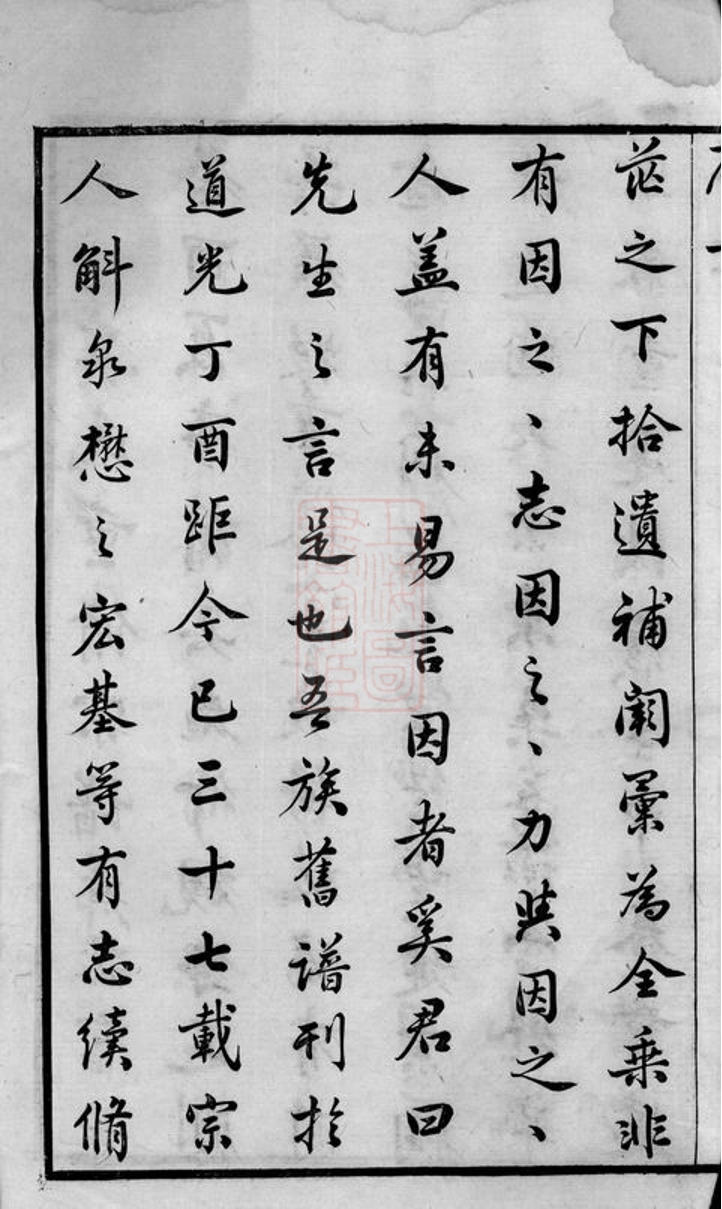 茫之下拾遺補闕彙為全乘非
有因之、志因之、力與因之、
人盖有未易言因者奚君曰
先生之言是也吾族舊譜刊於
道光丁酉距今已三十七載宗
人斛泉懋之宏基等有志續脩
上海圖
書館藏